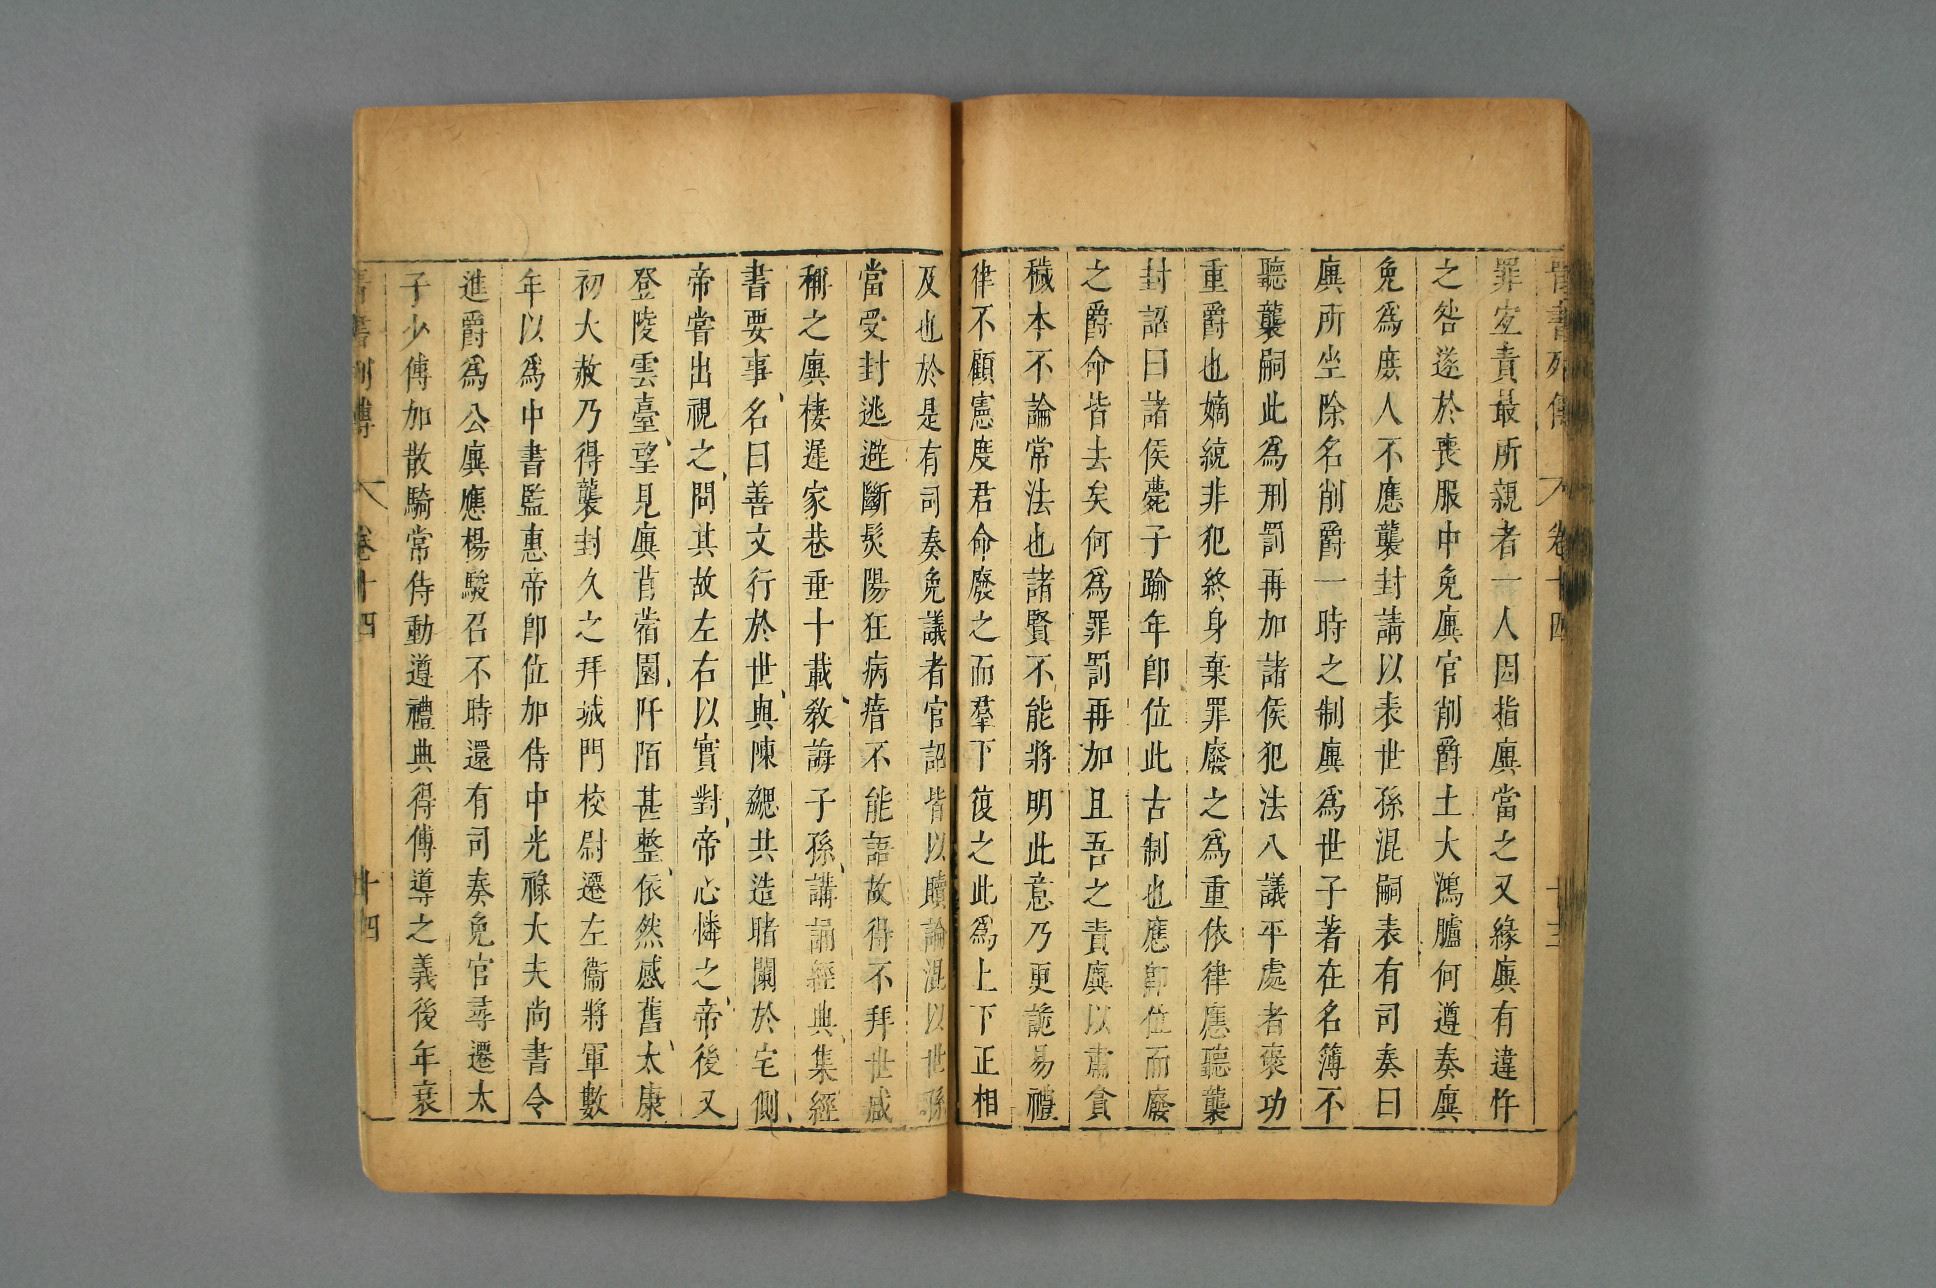 晉書列傳 卷十四 十三
罪宜責最所親者一人因指廙當之又緣廙有違忤
之咎遂於喪服中免廙官削爵土大鴻臚何遵奏廙
免爲庶人不應襲封請以表世孫混嗣表有司奏曰
廙所坐除名削爵一時之制廙爲世子著在名簿不
聽襲嗣此爲刑罰再加諸侯犯法八議平處者褒功
重爵也嫡統非犯終身棄罪廢之爲重依律應聽襲
封詔曰諸侯薨子踰年卽位此古制也應卽位而廢
之爵命皆去矣何爲罪罰再加且吾之責廙以肅貪
穢本不論常法也諸賢不能將明此意乃更詭易禮
律不顧憲度君命廢之而羣下復之此爲上下正相
及也於是有司奏免議者官詔皆以贖論混以世孫
當受封逃避斷髮陽狂病瘖不能語故得不拜世咸
稱之廙棲遲家巷垂十載、敎誨子孫、講誦經典、集經
書要事、名曰善文行於世、與陳勰共造豬闌於宅側、
帝嘗出視之、問其故左右以實對、帝心憐之、帝後又
登陵雲臺、望見廙苜蓿園、阡陌甚整、依然感舊、太康
初大赦乃得襲封久之拜城門校尉遷左衞將軍數
年以爲中書監惠帝卽位加侍中光祿大夫尚書令
進爵爲公廙應楊駿召不時還有司奏免官尋遷太
子少傅加散騎常侍動遵禮典得傅導之義後年衰
晉書列傳 卷十四 十四